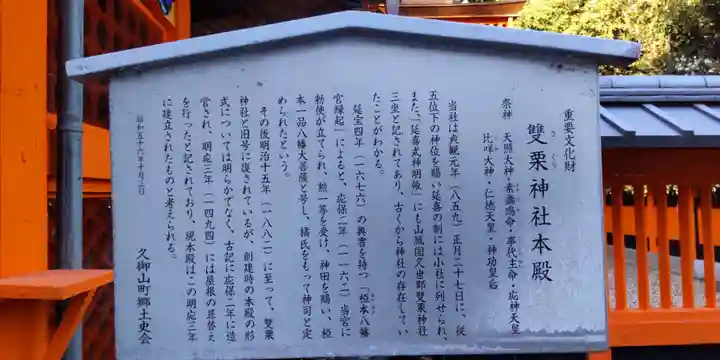 重要文化財
雙栗神社本殿
さぐり
祭神 天照大神・素盞嗚命・事代主命・応神天皇
比咩大神・仁徳天皇・神功皇后
当社は貞観元年（八五九）正月二十七日に、従
五位下の神位を賜い延喜の制には小社に列せられ、
また、「延喜式神明帳」にも山城国久世郡雙栗神社
三座と記されてあり、古くから神社の存在してい
たことがわかる。
延宝四年（一六七六）の奥書を持つ「椏本八幡
宮縁起」によると、応保二年（一一六二）当宮に
勅使が立てられ、勲一等を受け、神田を賜い、椏
本一品八幡大菩薩と号し、橘氏をもって神司と定
められたという。
その後明治十五年（一八八二）に至って、雙栗
神社と旧号に復されているが、創建時の本殿の形
式については明らかでなく、古記に応保二年に造
営され、明応三年（一四九四）には屋根の葺替え
を行ったと記されており、現本殿はこの明応三年
に建立されたものと考えられる。
昭和五十六年十月三日
久御山町郷土史会